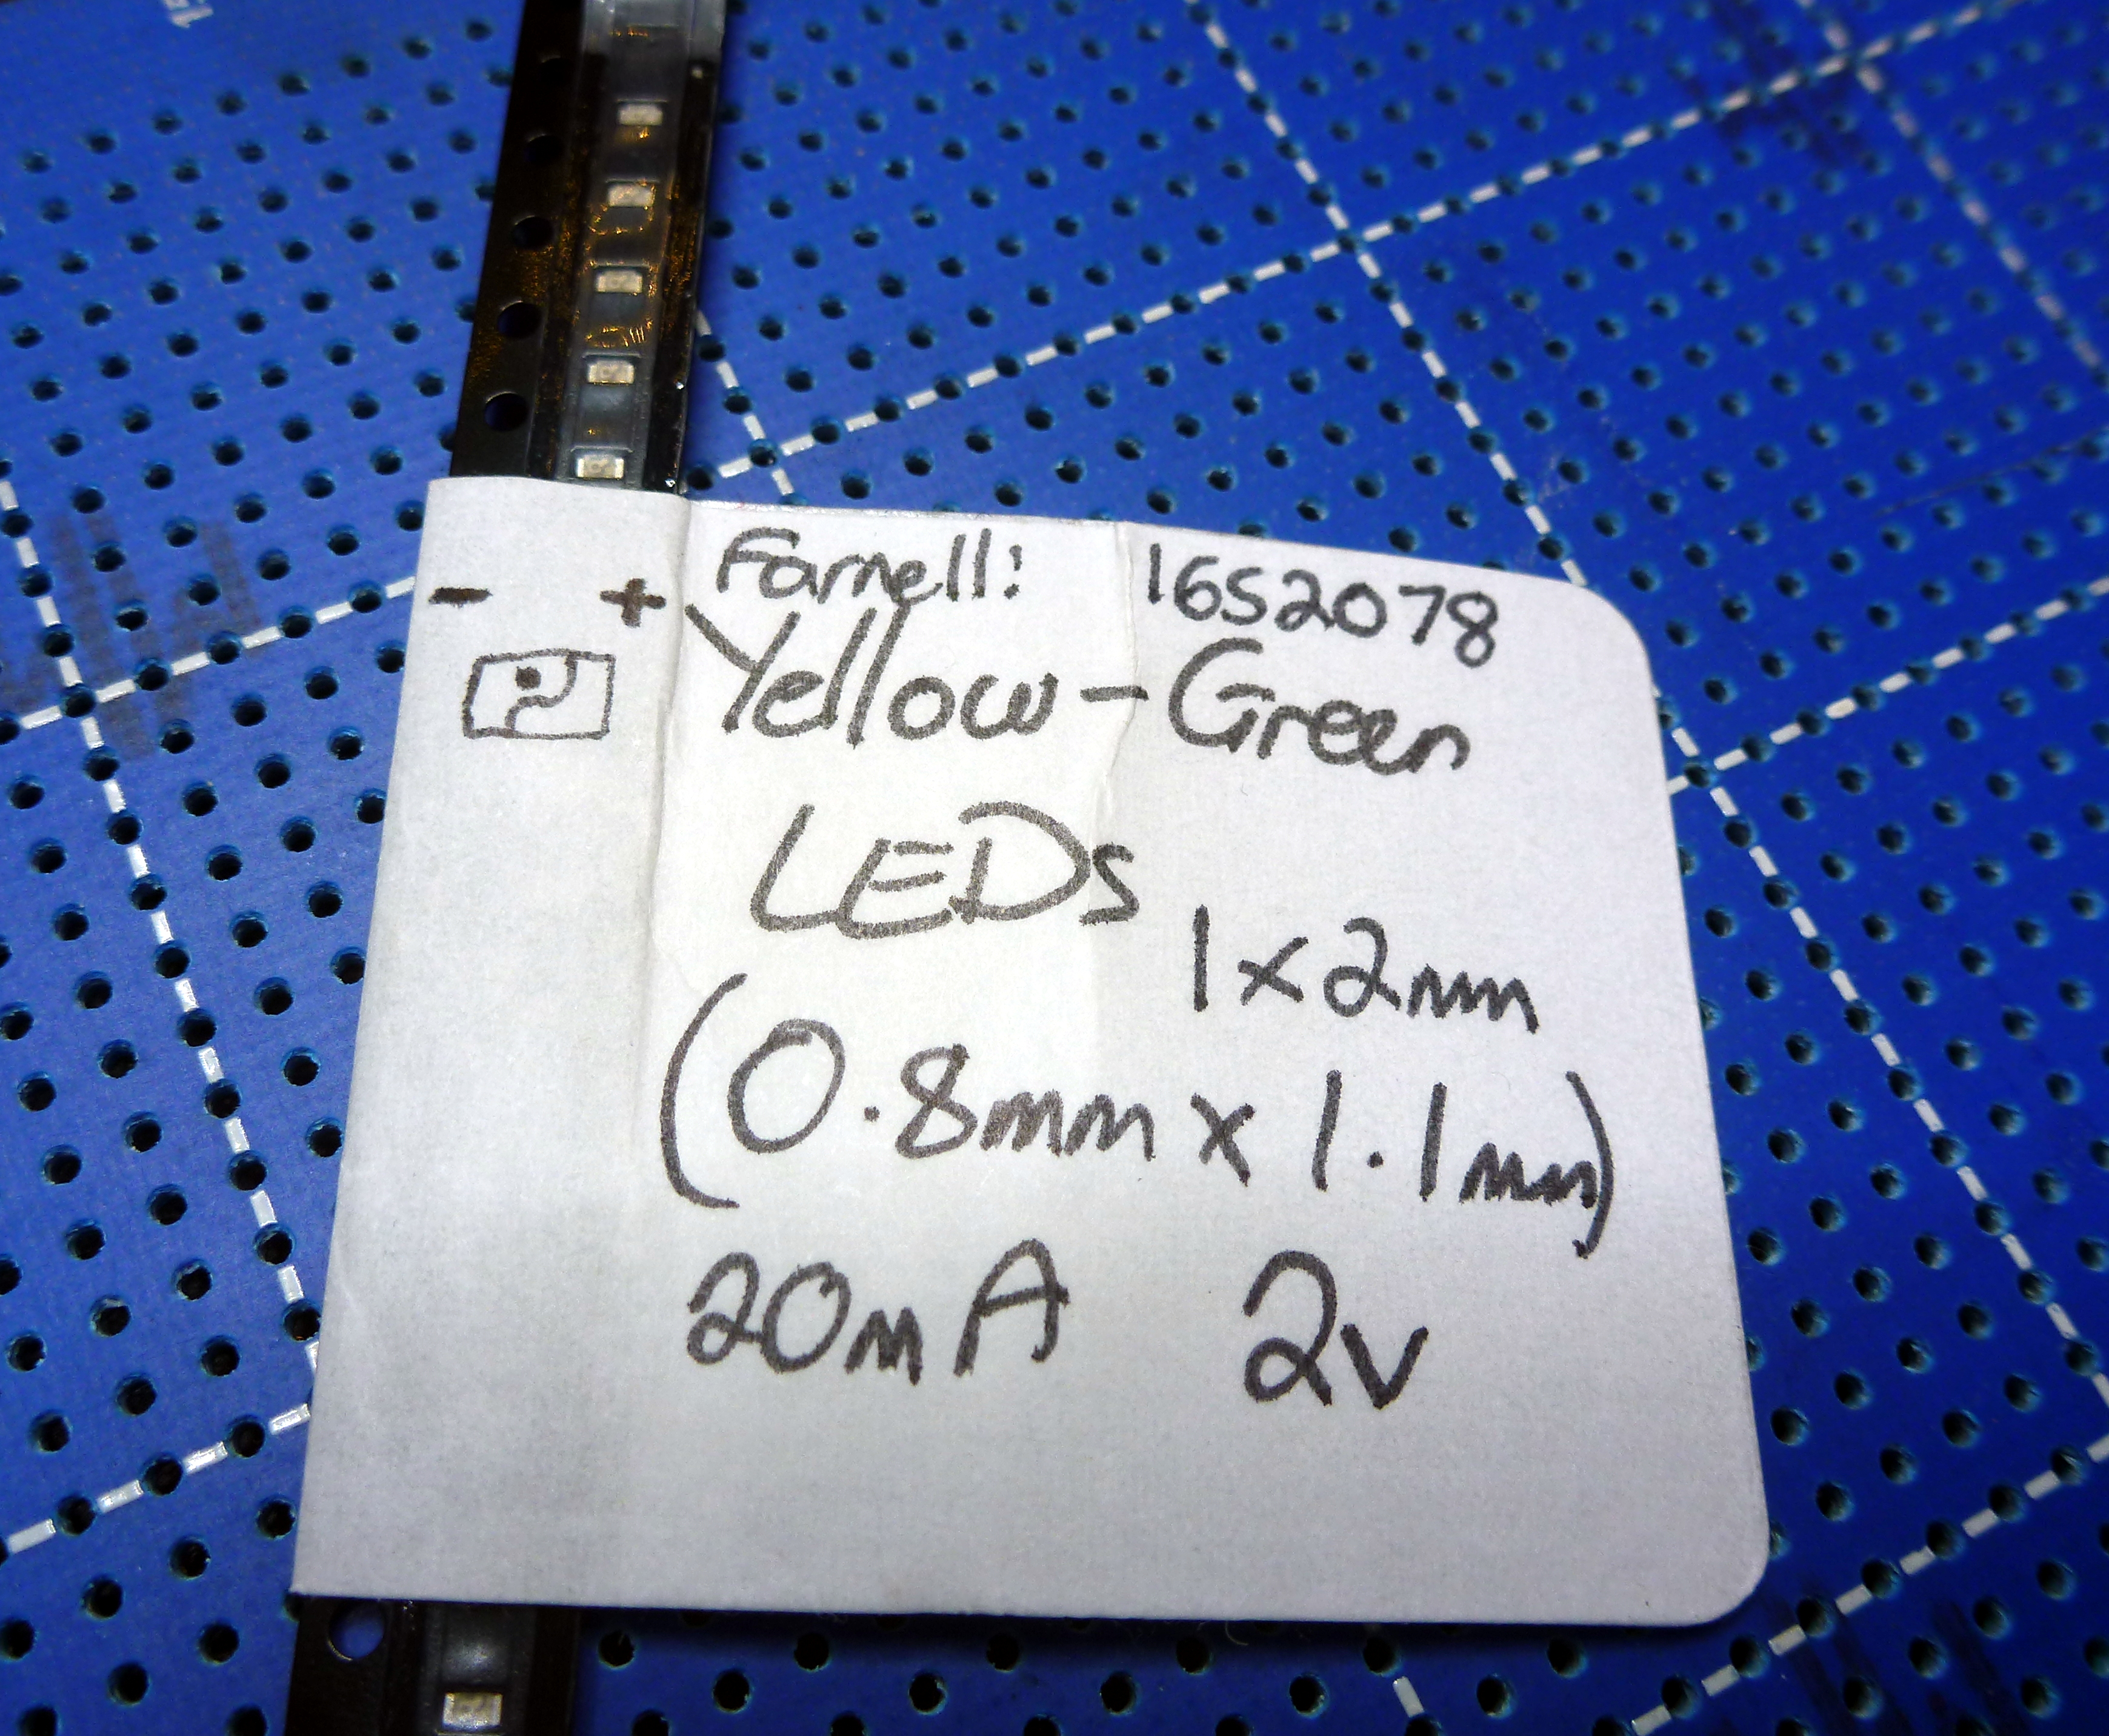 Farnell: 1652078
- +
Yellow-Green
LEDs
1x2mm
(0.8mm x 1.1mm)
20mA 2v